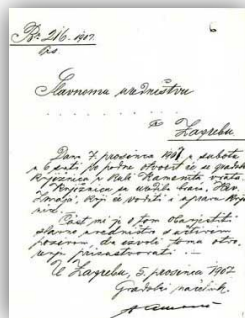 Br: 216. 1907.
Slavnomu uredništvu
. . . . . . . . . . . . .
Zagrebu
Dana 7. prosinca 1907 u subotu
u 6 sati po podne otvorit će se gradska
knjižnica u Kuli Kamenita vrata.
Knjižnica
koji će voditi i upravu knji
žnice.
Čast mi je o tom obavijestiti
slavno uredništvo s učtivim
pozivom, da izvoli tomu otvo
renju prisustvovati. —
U Zagrebu, 5. prosinca 1907
Gradski načelnik.